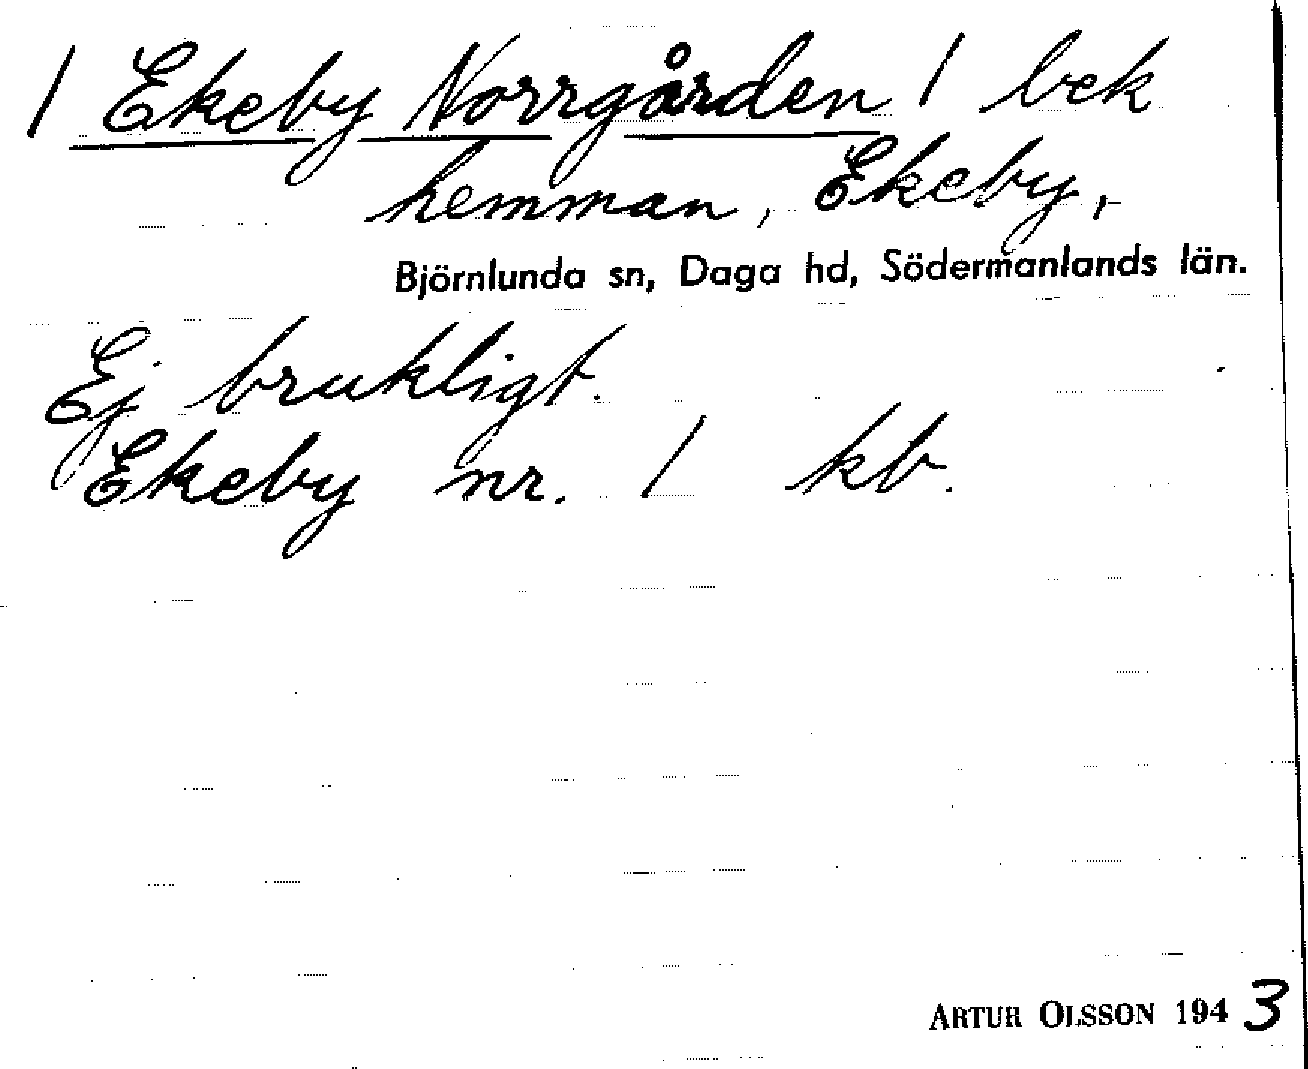 / Ekeby Norrgården / bek
hemman, Ekeby,
Björnlunda sn, Daga hd, Södermanlands län.
Ej brukligt.
Ekeby nr. 1 kb.
ARTUR OLSSON 1943